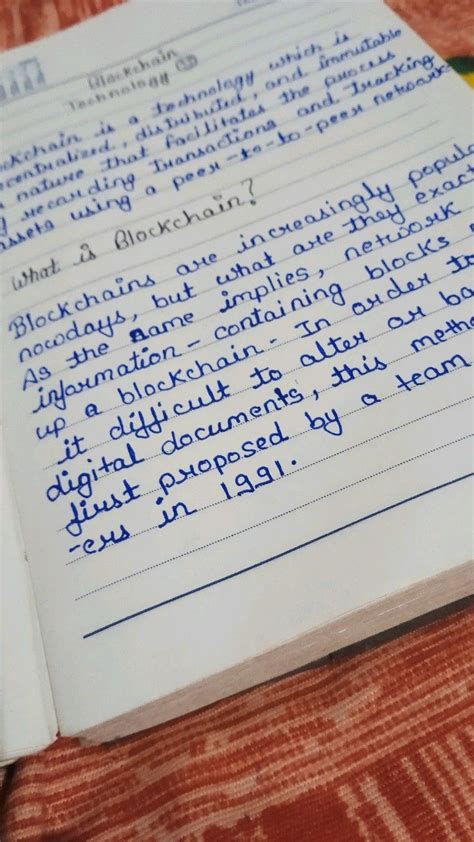 Blockchain
Technology
ckchain is a technology which is
centralized, distributed, and immutable
nature that facilitates the process
recording transactions and tracking
assets using a peer-to-to-peer network.
What is Blockchain?
Blockchains are increasingly popula
nowdays, but what are they exact
As the name implies, network
information-containing blocks
up a blockchain. In order to
it difficult to alter or ba
digital documents, this metho
first proposed by a team
-ers in 1991.